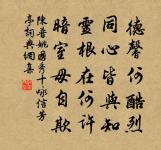 德馨何酷烈
同心皆與知
靈根在何許
暗室毋自欺
陳普姚國秀十咏信芳
亭詞典網集